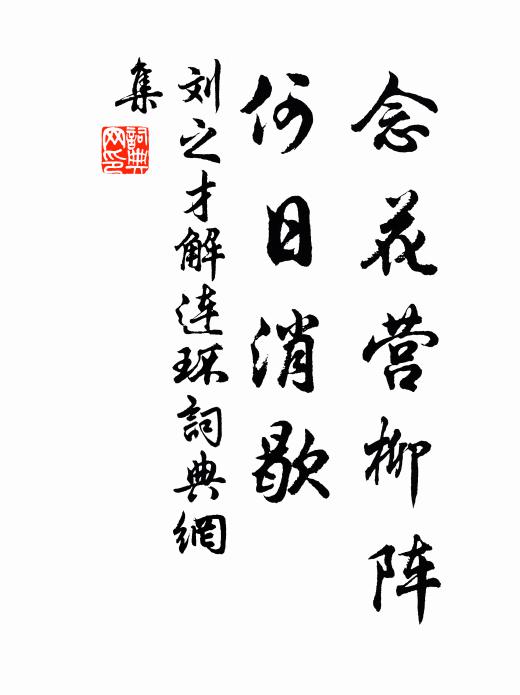 念花营柳阵
何日消歇
刘之才解连环詞典網
集
詞典网印